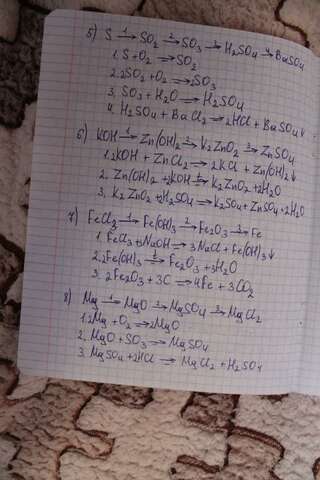 5) S →¹ SO₂ →² SO₃ →³ H₂SO₄ →⁴ BaSO₄
1. S + O₂ → SO₂
2. 2SO₂ + O₂ → 2SO₃
3. SO₃ + H₂O → H₂SO₄
4. H₂SO₄ + BaCl₂ → 2HCl + BaSO₄↓
6) KOH →¹ Zn(OH)₂ →² K₂ZnO₂ →³ ZnSO₄
1. 2KOH + ZnCl₂ → 2KCl + Zn(OH)₂↓
2. Zn(OH)₂ + 2KOH →ᵗ K₂ZnO₂ + 2H₂O
3. K₂ZnO₂ + 2H₂SO₄ → K₂SO₄ + ZnSO₄ + 2H₂O
7) FeCl₃ →¹ Fe(OH)₃ →² Fe₂O₃ →³ Fe
1. FeCl₃ + 3NaOH → 3NaCl + Fe(OH)₃↓
2. 2Fe(OH)₃ →ᵗ Fe₂O₃ + 3H₂O
3. 2Fe₂O₃ + 3C → 4Fe + 3CO₂
8) Mg →¹ MgO →² MgSO₄ →³ MgCl₂
1. 2Mg + O₂ → 2MgO
2. MgO + SO₃ → MgSO₄
3. MgSO₄ + 2HCl → MgCl₂ + H₂SO₄